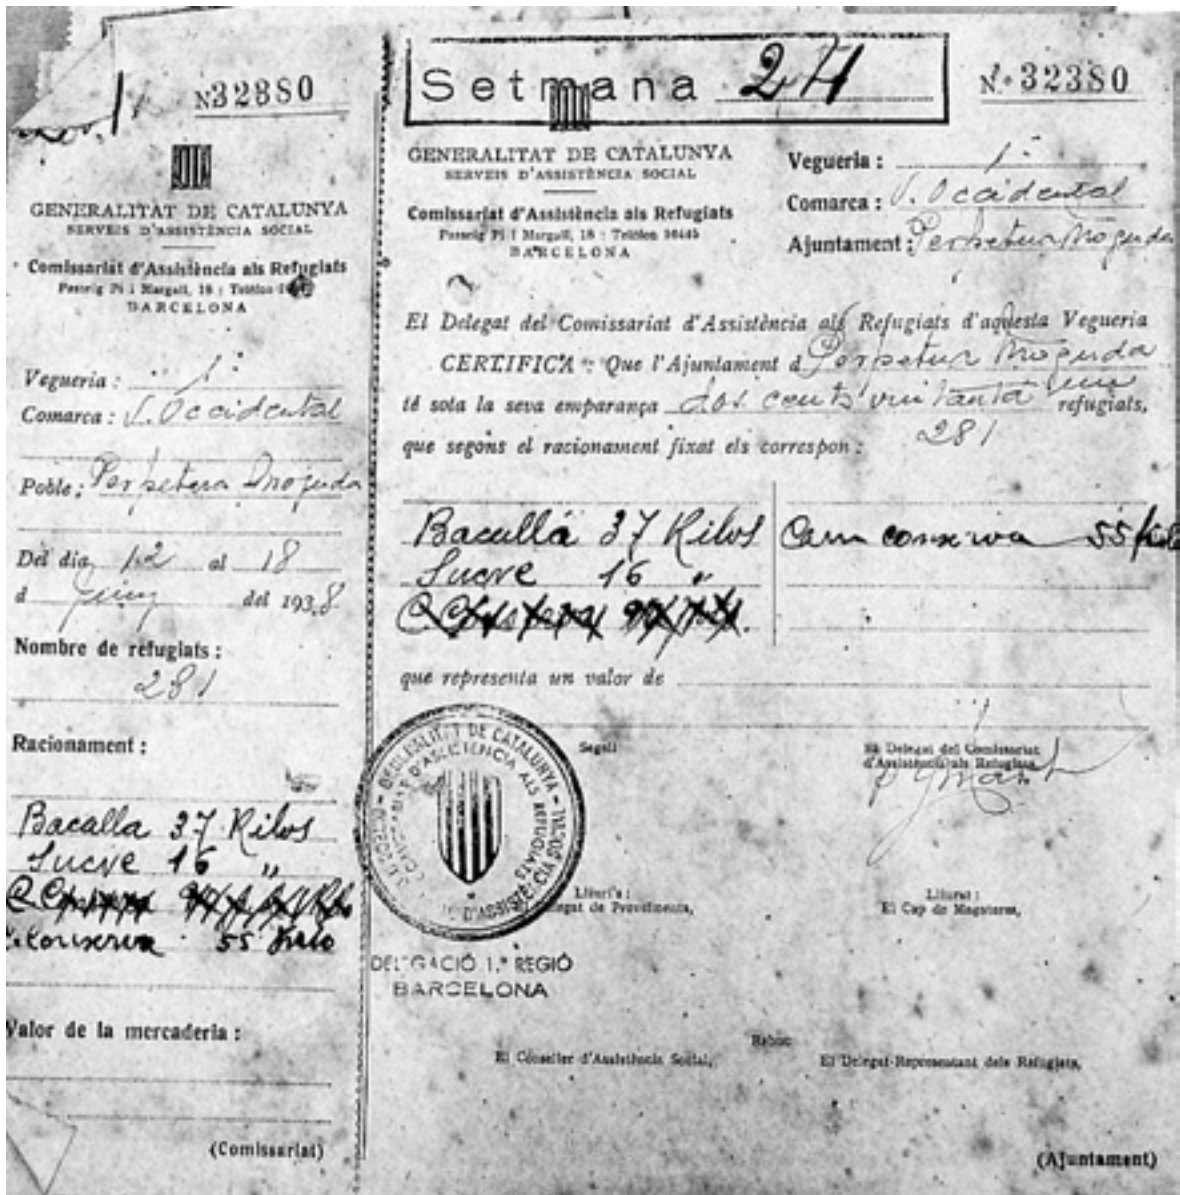 N 32380
GENERALITAT DE CATALUNYA
SERVEIS D'ASSISTÈNCIA SOCIAL
Comissariat d'Assistència als Refugiats
Passeig Pi i Margall, 18 : Telèfon
BARCELONA
Vegueria : 1ª
Comarca : V. Occidental
Poble : Perpetua Moguda
Del dia 12 al 18
d Juny del 1938
Nombre de refugiats :
281
Racionament :
Bacalla 37 Kilos
Sucre 16 "
C. Conserva 55 Kilo
Valor de la mercaderia :
(Comissariat)
Setmana 24
N.º 32380
GENERALITAT DE CATALUNYA
SERVEIS D'ASSISTÈNCIA SOCIAL
Comissariat d'Assistència als Refugiats
Passeig Pi i Margall, 18 : Telèfon
BARCELONA
Vegueria : 1ª
Comarca : V. Occidental
Ajuntament : Perpetua Moguda
El Delegat del Comissariat d'Assistència als Refugiats d'aquesta Vegueria
CERTIFICA : Que l'Ajuntament d Perpetua Moguda
té sota la seva emparança dos cents vuitanta un refugiats,
281
que segons el racionament fixat els correspon :
Bacallá 37 Kilos
Sucre 16 "
Carn conserva 55 kilo
que representa un valor de
Segell
El Delegat del Comissariat
d'Assistència als Refugiats,
GENERALITAT DE CATALUNYA
COMISSARIAT D'ASSISTENCIA ALS REFUGIATS
D'ASSISTENCIA SOCIAL
DELEGACIÓ 1.ª REGIÓ
BARCELONA
Lliuri's :
Delegat de Proveïments,
Lliurat :
El Cap de Magatzems,
Rebut:
El Conseller d'Assistència Social,
El Delegat-Representant dels Refugiats,
(Ajuntament)